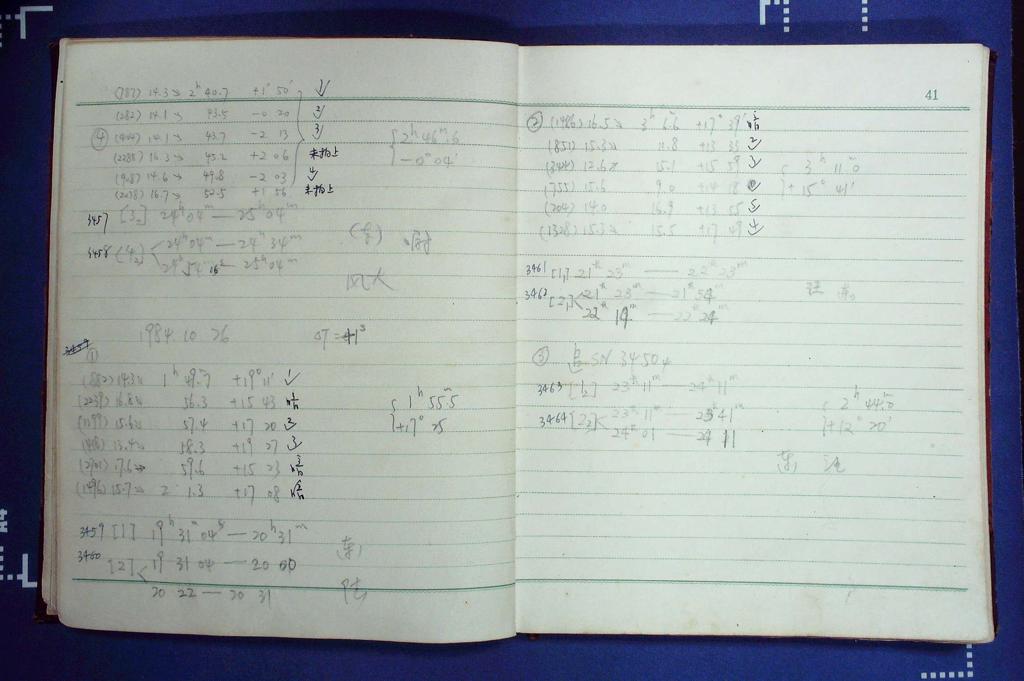 (787) 14.3↘ 2ʰ 40.7 +1° 50′
(282) 14.1↘ 43.5 -0 20
④ (404) 14.1↘ 43.7 -2 13 3
(2288) 16.3↘ 45.2 +2 06 未拍上
(98) 14.6↘ 49.8 -2 03
(2078) 16.7↘ 52.5 +1 56 未拍上
2ʰ 46ᵐ.6
-0° 04′
3457 [3₂] 24ʰ 04ᵐ — 25ʰ 04ᵐ
3458 24ʰ 04ᵐ — 24ʰ 34ᵐ
24ʰ 54ᵐ — 25ʰ 04ᵐ
风大
1984.10.26 ΔT=41ˢ
①
(882) 14.3↘ 1ʰ 49ᵐ.7 +19° 11′
(2239) 16.8↘ 56.3 +15 43 暗
(1199) 15.6↘ 57.4 +17 20 3
(488) 13.4↘ 58.3 +19 27 3
17.6 59.6 +15 23 暗
(1496) 15.7↘ 2 1.3 +17 08 暗
1ʰ 55ᵐ.5
+17° 25
3459 [1] 19ʰ 31ᵐ 04ˢ — 20ʰ 31ᵐ
3460 [2] 19 31 04 — 20 00
20 22 — 20 31
陆
41
② (1486) 16.5↘ 3ʰ 6ᵐ.6 +17° 39′ 暗
(851) 15.3↘ 11.8 +13 33 2
(344) 12.6↘ 15.1 +15 59
(755) 15.6 9.0 +14 18
(204) 14.0 16.9 +13 55 5
(1328) 15.3↘ 15.5 +17 49 4
3ʰ 11ᵐ.0
+15° 41′
3461 [1₁] 21ʰ 23ᵐ — 22ʰ 23ᵐ
3462 [2₁] 21ʰ 23ᵐ — 21ʰ 54ᵐ
22ʰ 14ᵐ — 22ʰ 24ᵐ
③ 追 SN 3450
3463 [1₂] 23ʰ 11ᵐ — 24ʰ 11ᵐ
3464 [2₃] 23ʰ 11ᵐ — 23ʰ 41ᵐ
24ʰ 01 — 24 11
2ʰ 44ᵐ.0
+12° 20′